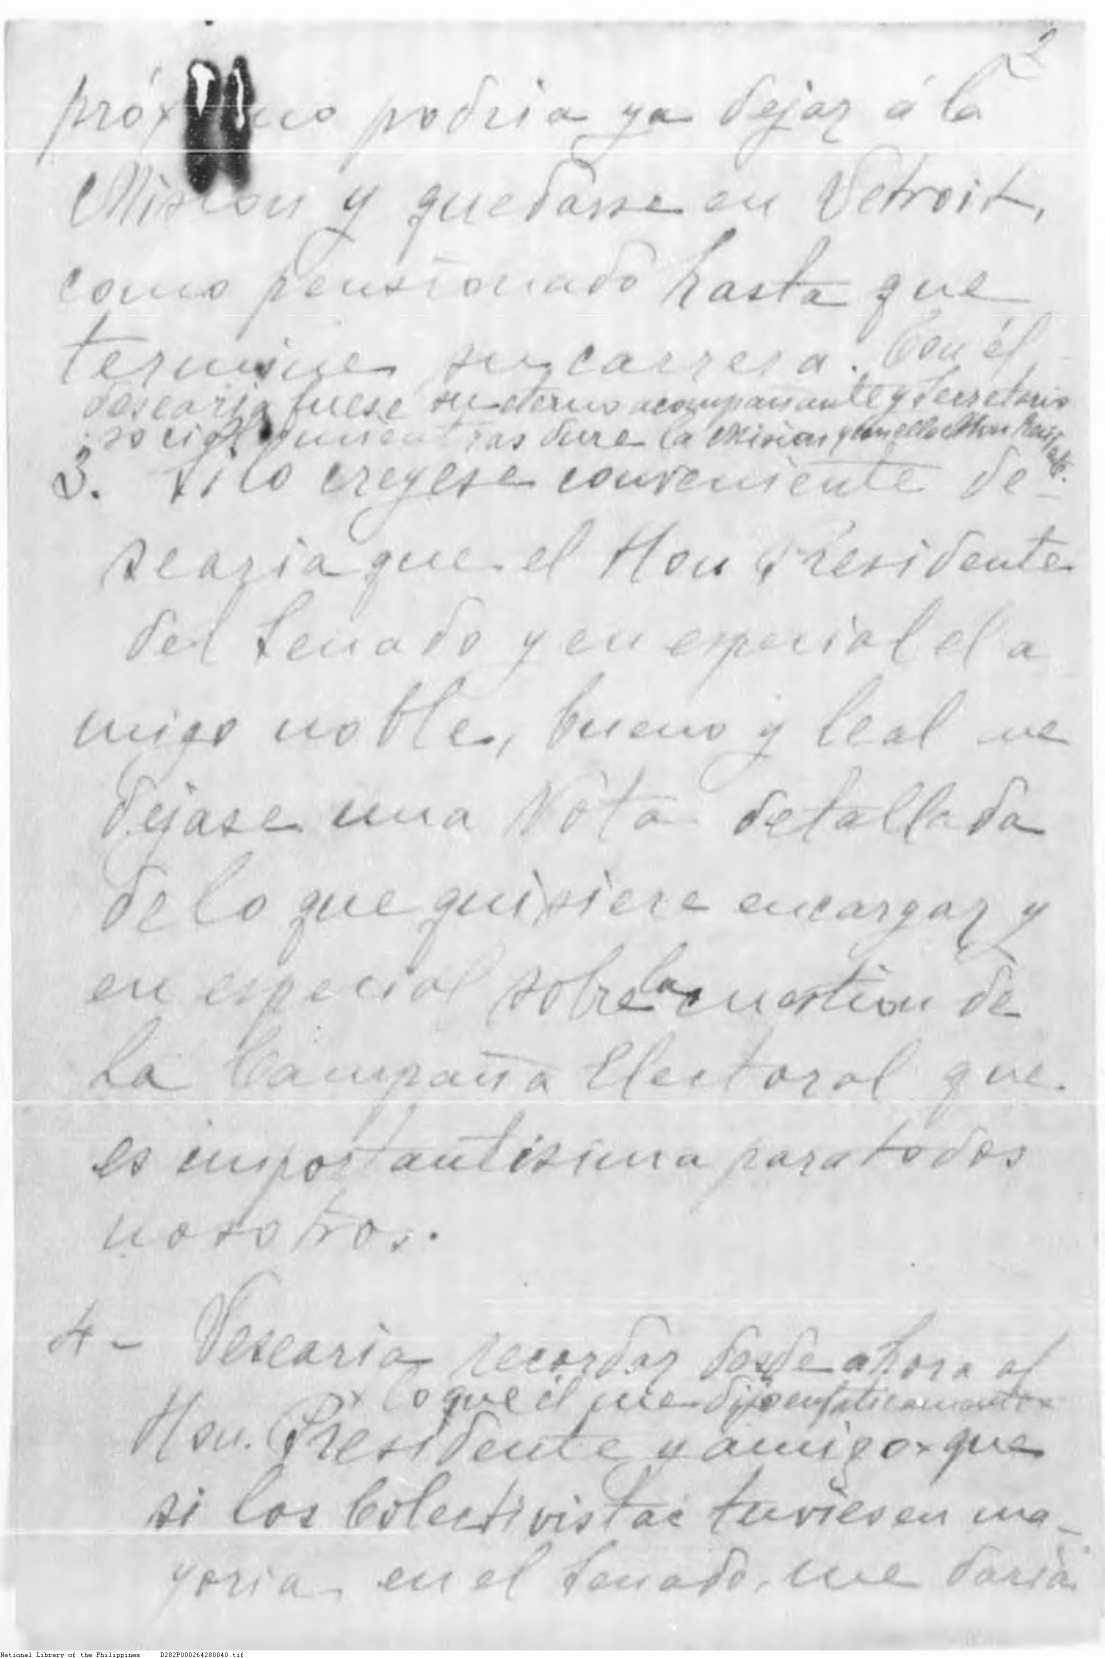 2
próximo podria ya dejar á la
Mision y quedarse en Detroit,
como pensionado hasta que
termine su carrera. Con él
desearia fuese su eterno acompañante y Secretario
social mientras dure la Mision y con ello Mon
3. Si lo creyese conveniente de-
searia que el Hon Presidente
del Senado y en especial el a
migo noble, bueno y leal me
dejase una Nota detallada
de lo que quisiere encargar y
en especial sobre la cuestion de
La Campaña Electoral que
es importantisima para todos
nosotros.
4- Desearia recordar desde ahora al
lo que él me dijo enfaticamente
Hon. Presidente y amigo x que
si los Colectivistas tuviesen ma-
yoria en el Senado, me daria
National Library of the Philippines D282P000264280040.tif